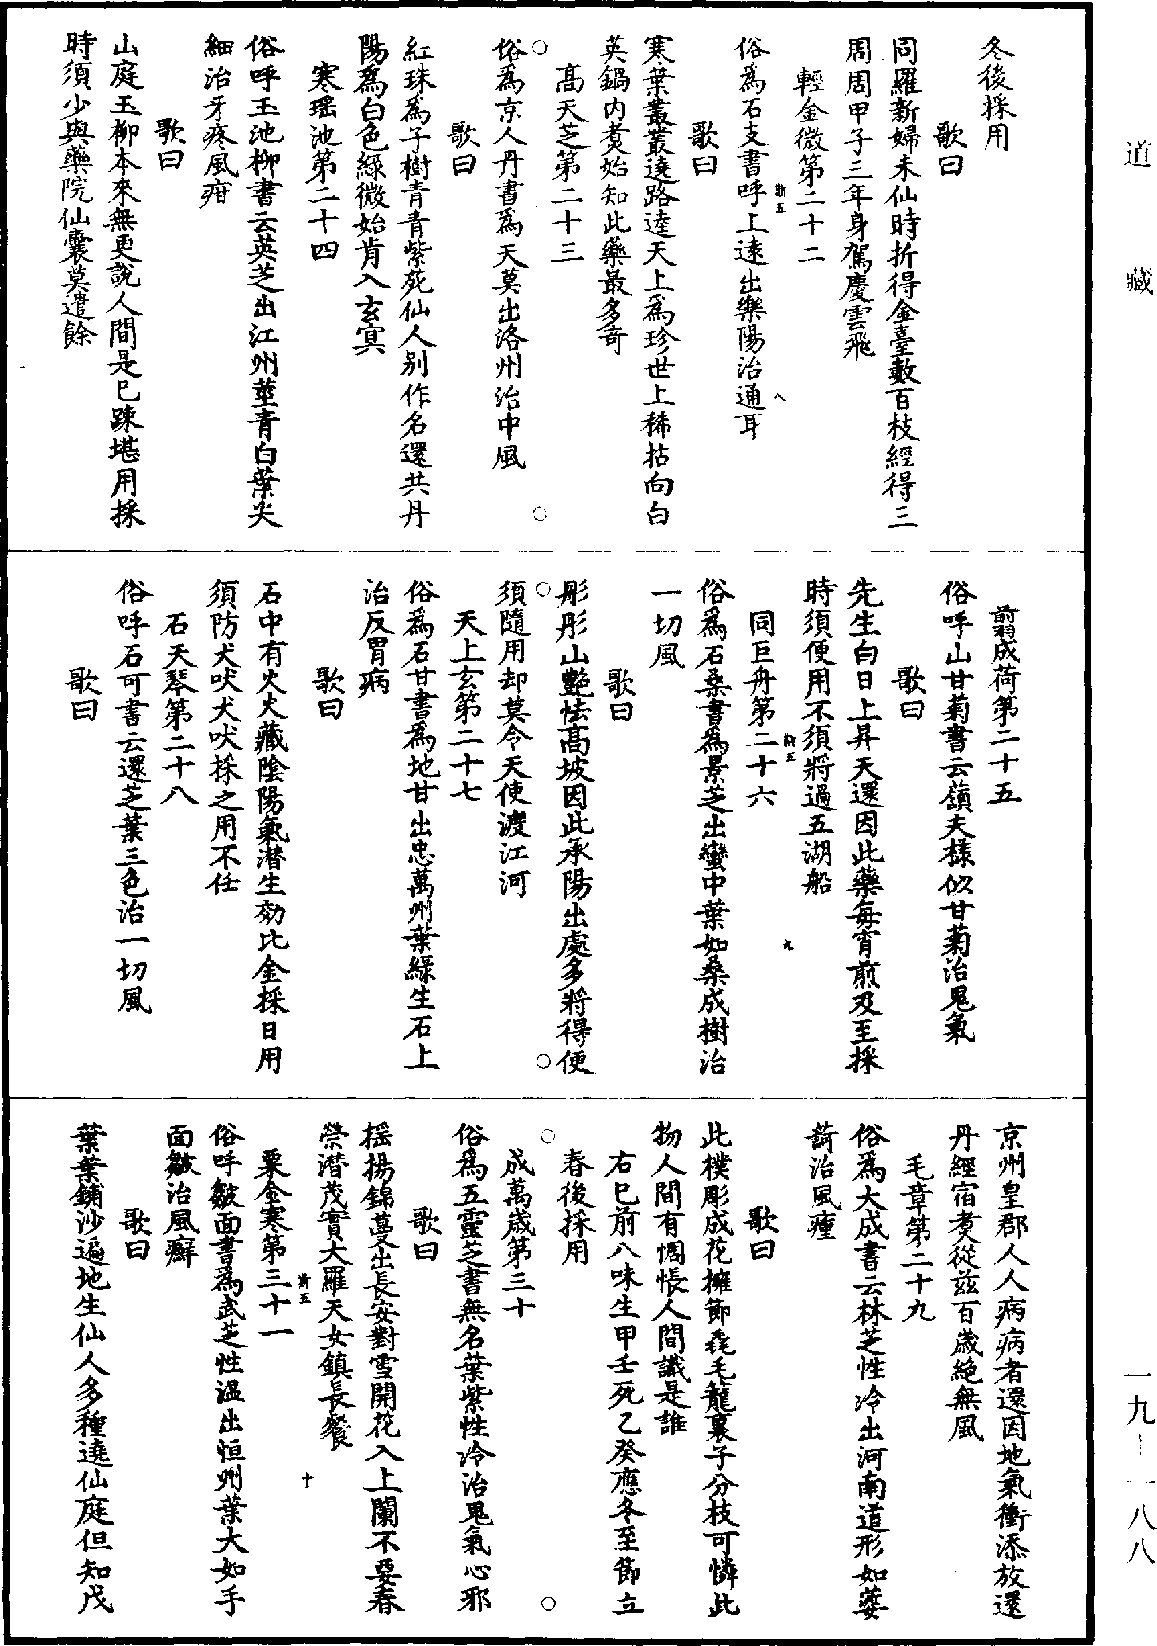 道藏
冬後採用
歌曰
同羅新婦未仙時折得金臺數百枝經得三
周周甲子三年身駕慶雲飛
輕金微第二十二
俗爲石支書呼上逺出樂陽治通耳
歌曰
寒葉叢叢遶路逵天上爲珍世上稀拈向白
英鍋内煑始知此藥最多竒
高天芝第二十三
俗爲京人丹書爲天莫出洛州治中風
歌曰
紅珠爲子樹青青紫死仙人别作名還共丹
陽爲白色緑微始肯入玄冥
寒瑶池第二十四
俗呼玉池柳書云英芝出江州莖青白葉尖
細治牙疼風疳
歌曰
山庭玉柳本來無更說人間是巳踈堪用採
時須少與藥院仙囊莫遣餘
翦成荷第二十五
俗呼山甘菊書云嶺夫樣似甘菊治鬼氣
歌曰
先生白日上昇天還因此藥每宵煎及至採
時須便用不須將過五湖船
同巨舟第二十六
俗爲石桑書爲景芝出蠻中葉如桑成樹治
一切風
歌曰
彤彤山艷怯高坡因此承陽出處多將得便
須隨用却莫令天使渡江河
天上玄第二十七
俗爲石甘書爲地甘出忠萬州葉緑生石上
治反胃病
歌曰
石中有火火藏陰陽氣潜生効比金採日用
須防犬吠犬吠採之用不任
石天琴第二十八
俗呼石可書云還芝葉三色治一切風
歌曰
京州皇郡人人病病者還因地氣衝添放還
丹經宿煑從兹百歲絶無風
毛章第二十九
俗爲大成書云林芝性冷出河南道形如蔞
蒟治風瘇
歌曰
此樸彫成花擁節毳毛籠裏子分枝可憐此
物人間有惆悵人間識是誰
右巳前八味生甲壬死乙癸應冬至節立
春後採用
成萬歲第三十
俗爲五靈芝書無名葉紫性冷治鬼氣心邪
歌曰
摇揚錦蔓出長安對雪開花入上闌不要春
榮潜茂實大羅天女鎮長飱
粟金寒第三十一
俗呼皺面書爲武芝性温出恒州葉大如手
面皺治風癬
歌曰
葉葉鋪沙遍地生仙人多種遶仙庭但知戊
一九—一八八